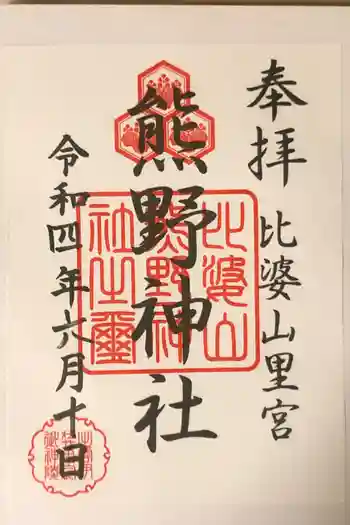 奉拝
比婆山里宮
熊野神社
令和四年六月十日
比婆山
熊野神
社之璽